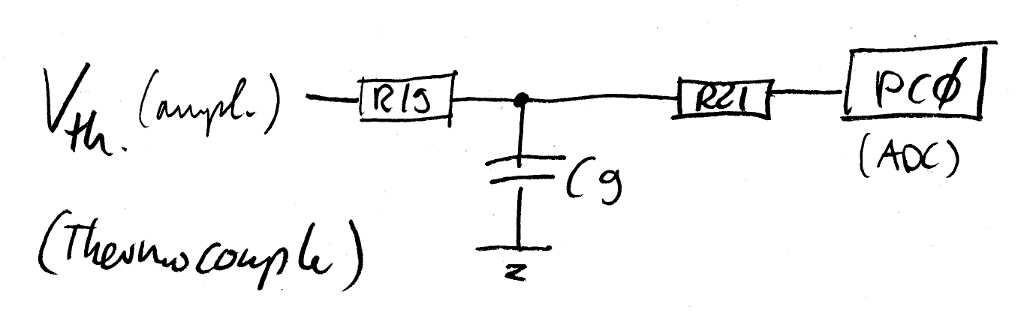 Vth. (ampl.) R19 R21 PCØ
(ADC)
C9
(Thermocouple)